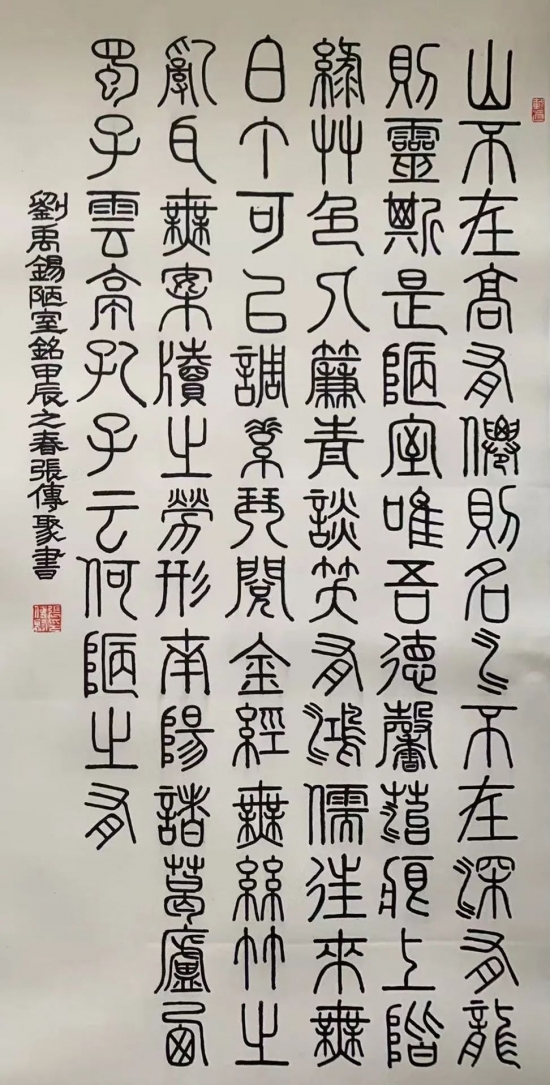 山不在高有僊則名水不在深有龍
則靈斯是陋室唯吾德馨菭痕上階
綠艸色入簾青談笑有鴻儒往來無
白丁可以調素琴閱金經無絲竹之
亂耳無案牘之勞形南陽諸葛廬西
蜀子雲亭孔子云何陋之有
劉禹錫陋室銘甲辰之春張傳聚書